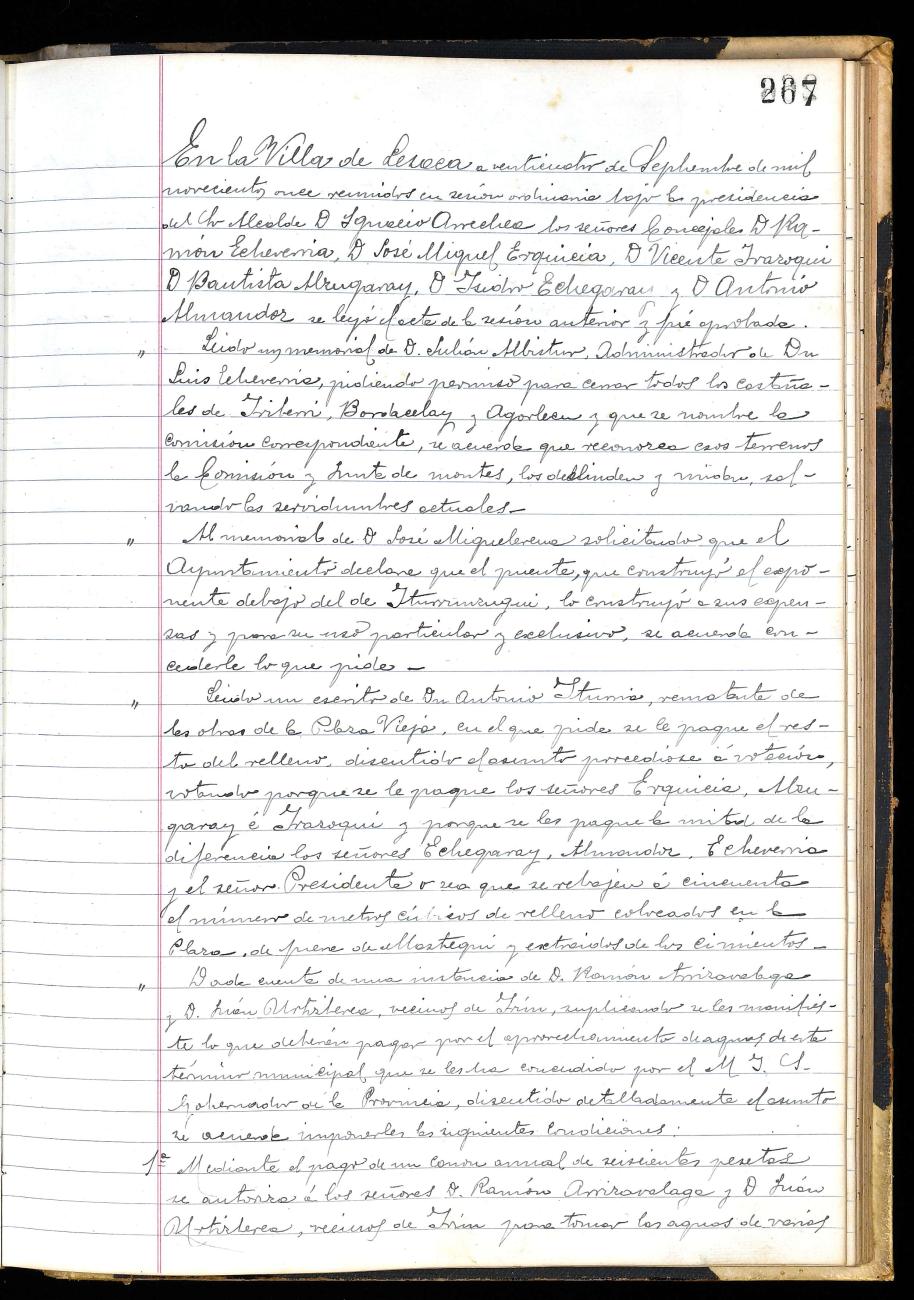 267
En la Villa de Lesaca a venticuatro de Septiembre de mil
novecientos once reunidos en sesión ordinaria bajo la presidencia
del Sr Alcalde D Ignacio Arrechea los señores Concejales D Ra-
món Echeverria, D José Miguel Erquicia, D Vicente Irazoqui
D Bautista Alzugaray, D Isidro Echegaray y D Antonio
Almandoz se leyó el acta de la sesión anterior y fué aprobada.
" Leido un memorial de D. Julián Albistur, Administrador de Dn
Luis Echeverria, pidiendo permiso para cerrar todos los castaña-
les de Iriberri, Bordacelay y Agorlecu y que se nombre la
comisión correspondiente, se acuerda que reconozca esos terrenos
la Comisión y Junta de montes, los deslinden y midan, sal-
vando las servidumbres actuales_
" Al memorial de D José Miguelerena solicitando que el
Ayuntamiento declare que el puente, que construyó el expo-
nente debajo del de Iturrinzugui, lo construyó a sus expen-
sas y para su uso particular y exclusivo, se acuerda con-
cederle lo que pide_
" Leido un escrito de Dn Antonio Iturria, rematante de
las obras de la Plaza Vieja, en el que pide se le pague el res-
to del relleno, discutido el asunto procediose á votación,
votando porque se le pague los señores Erquicia, Alzu-
garay é Irazoqui y porque se les pague la mitad de la
diferencia los señores Echegaray, Almandoz, Echeverria
y el señor Presidente o sea que se rebajen á cincuenta
el número de metros cúbicos de relleno colocados en la
Plaza, de fuera de Mastegui y extraidos de los cimientos_
" Dada cuenta de una instancia de D. Ramón Arrizavalaga
y D. Juán Urtizberea, vecinos de Irún, suplicando se les manifies-
te lo que deberán pagar por el aprovechamiento de aguas de este
término municipal que se les ha concedido por el M. I. S.
Gobernador de la Provincia, discutido detalladamente el asunto
se acuerda imponerles las siguientes condiciones:
1ª Mediante el pago de un canon annual de seiscientas pesetas
se autoriza á los señores D. Ramón Arrizavalaga y D Juán
Urtizberea, vecinos de Irún para tomar las aguas de varias